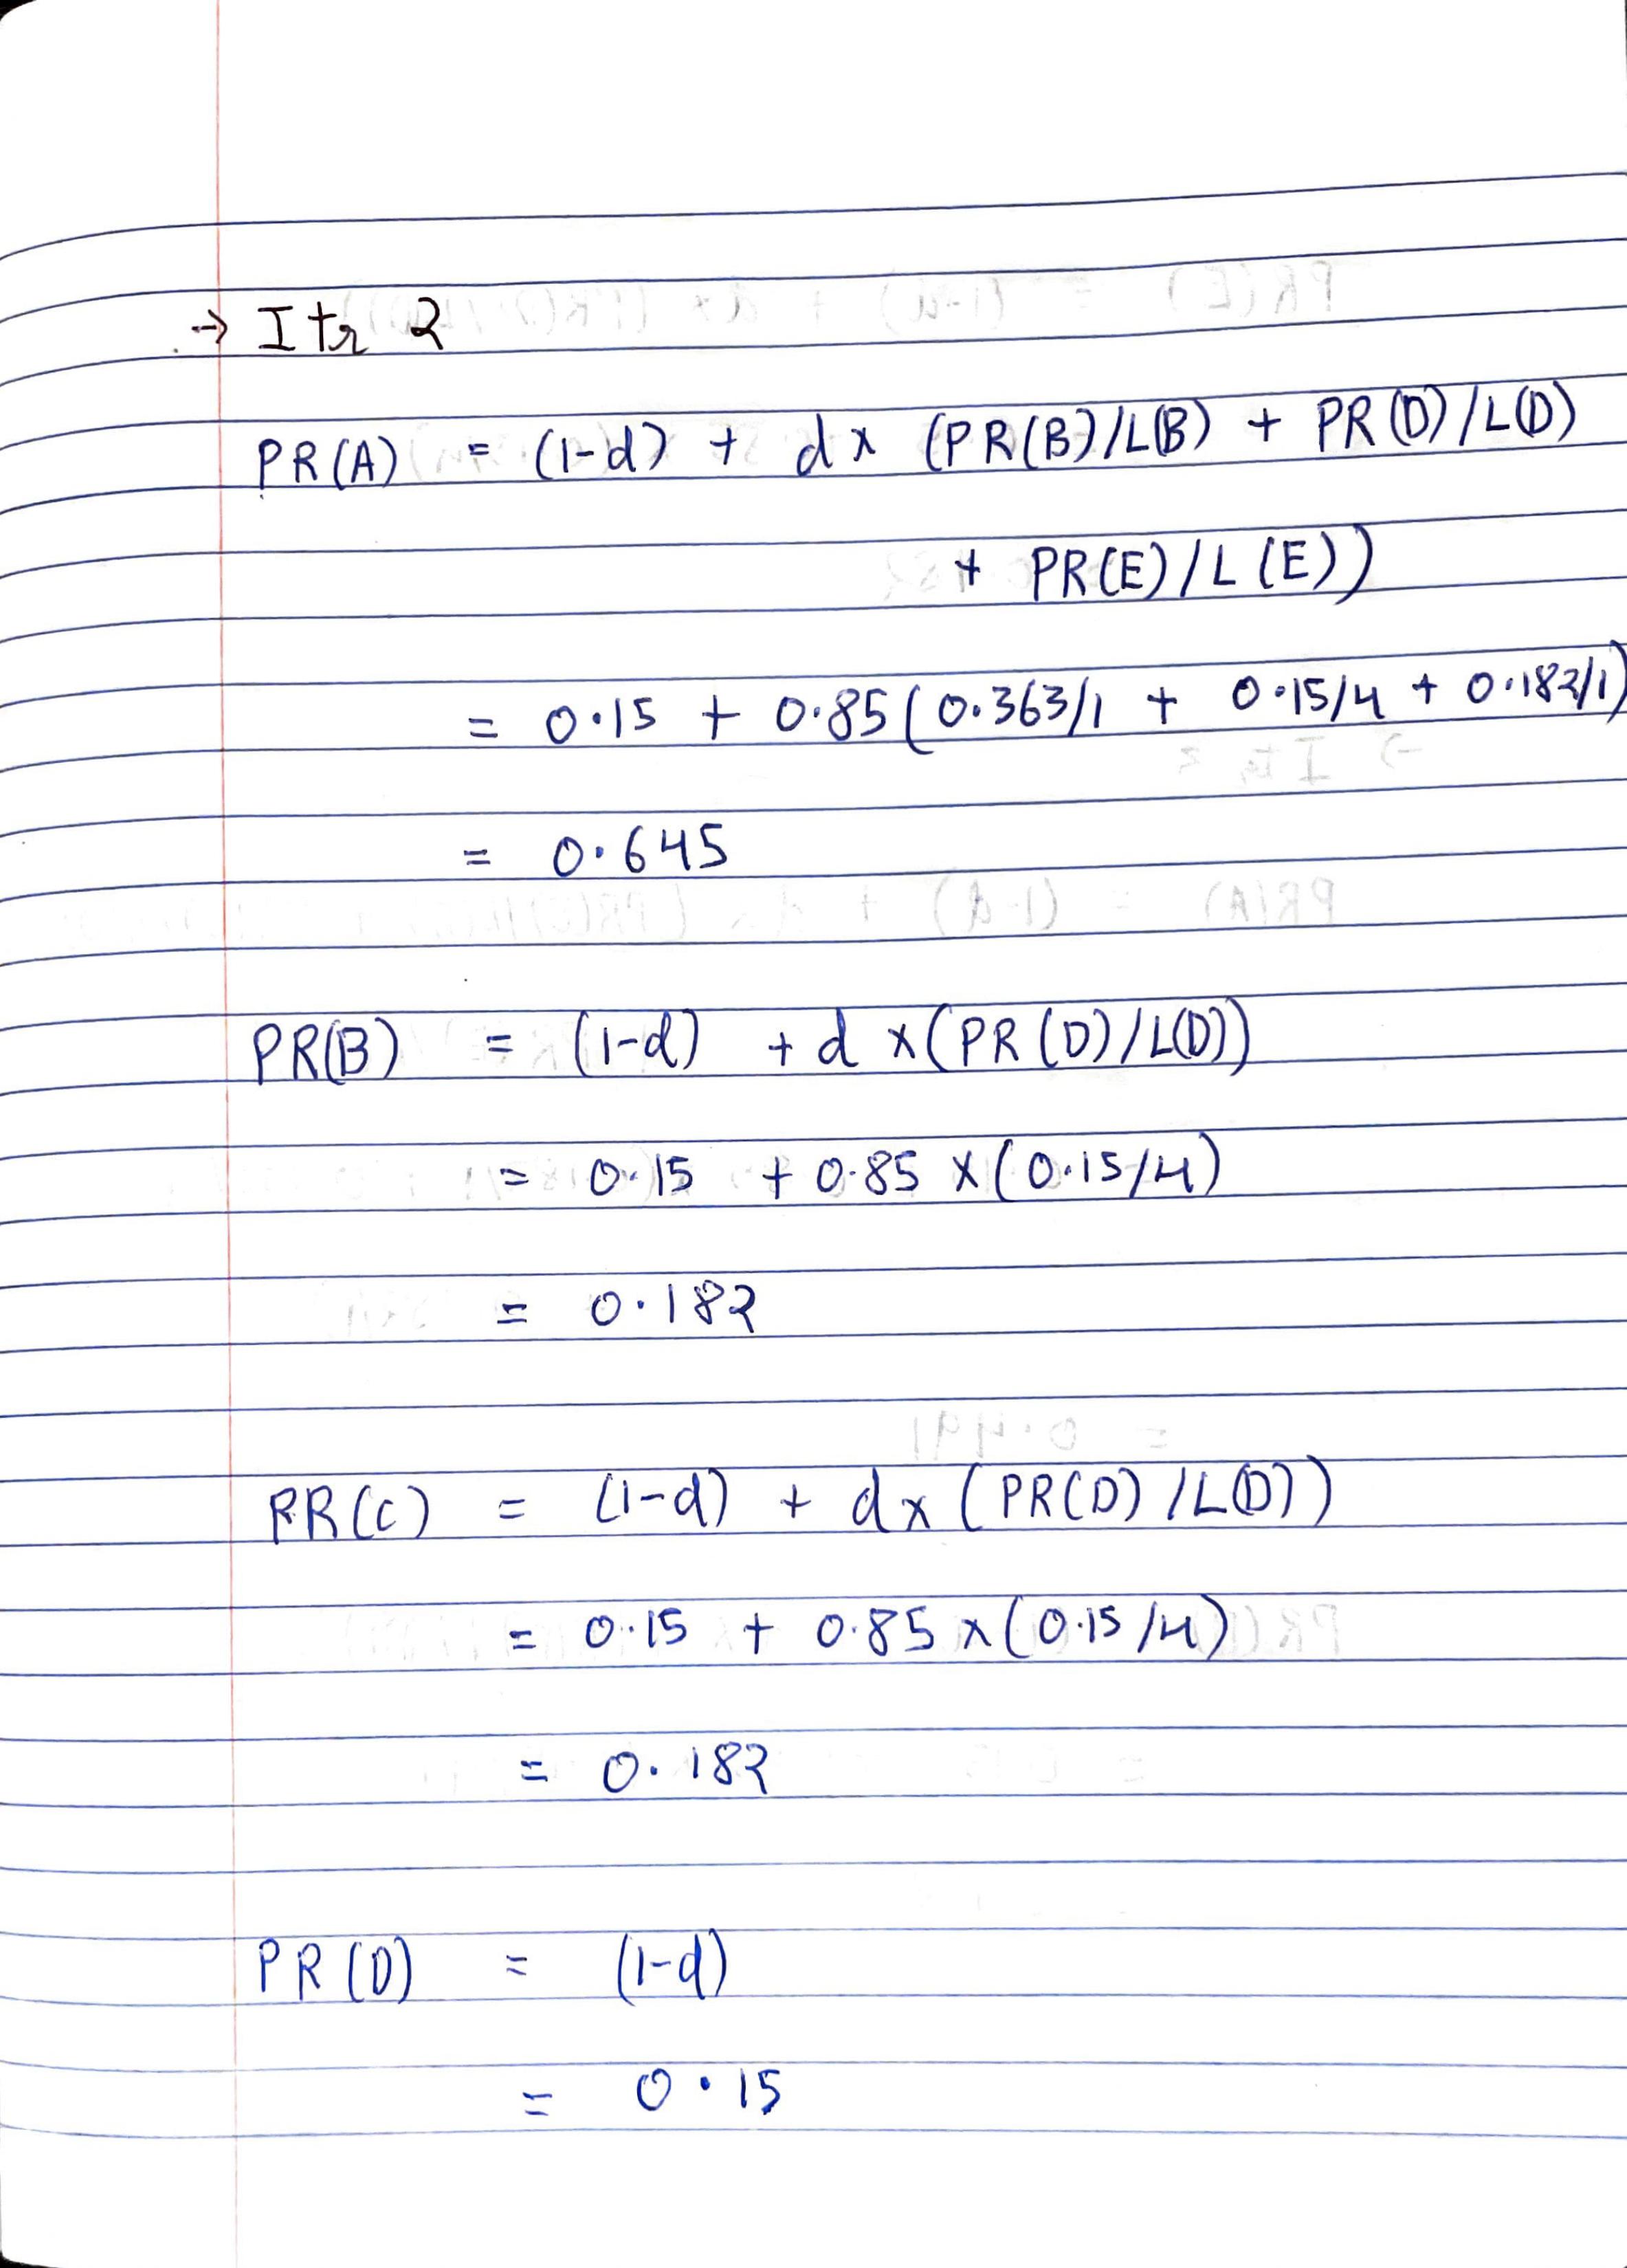 → Itr 2
PR(A) = (1-d) + d x (PR(B)/L(B) + PR(D)/L(D)
+ PR(E)/L(E))
= 0.15 + 0.85(0.363/1 + 0.15/4 + 0.182/1)
= 0.645
PR(B) = (1-d) + d x(PR(D)/L(D))
= 0.15 + 0.85 x(0.15/4)
= 0.182
PR(C) = (1-d) + dx (PR(D)/L(D))
= 0.15 + 0.85 x(0.15/4)
= 0.182
PR(D) = (1-d)
= 0.15